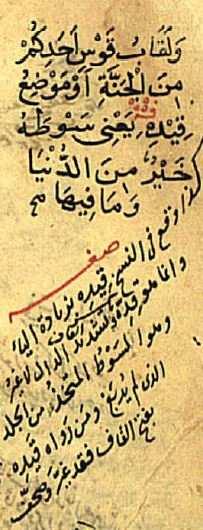 وَلَقَابُ قَوْسِ أَحَدِكُمْ
مِنَ الْجَنَّةِ أَوْ مَوْضِعُ
قِيْدِهِ يَعْنِي سَوْطَهُ
خَيْرٌ مِنَ الدُّنْيَا
وَمَا فِيهَا
كذا وقع في النسخ قيده بزيادة الياء
وانما هو قده بتشديد الدال لا غير
وهو السوط المتخذ من الجلد
الذي لم يدبغ ومن رواه قيده
بفتح القاف فقد غير وصحف